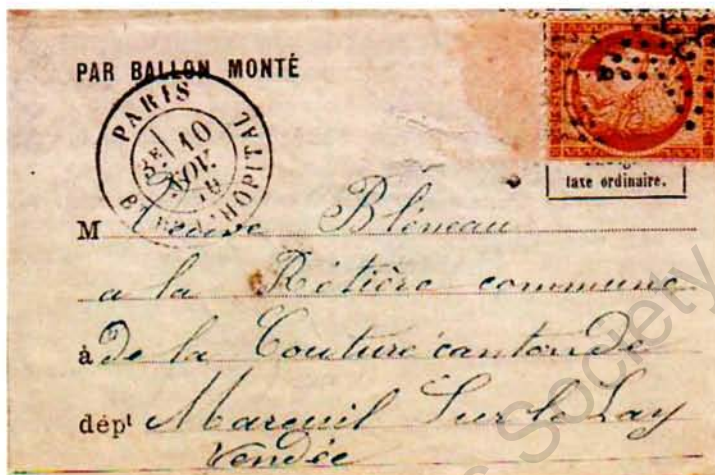 PAR BALLON MONTÉ
PARIS
3E 10
NOV.
HOPITAL
taxe ordinaire.
M Veuve Bléneau
a la Rétière commune
à de la Couture canton de
dépt Mareuil Sur le Lay
Vendée
Society